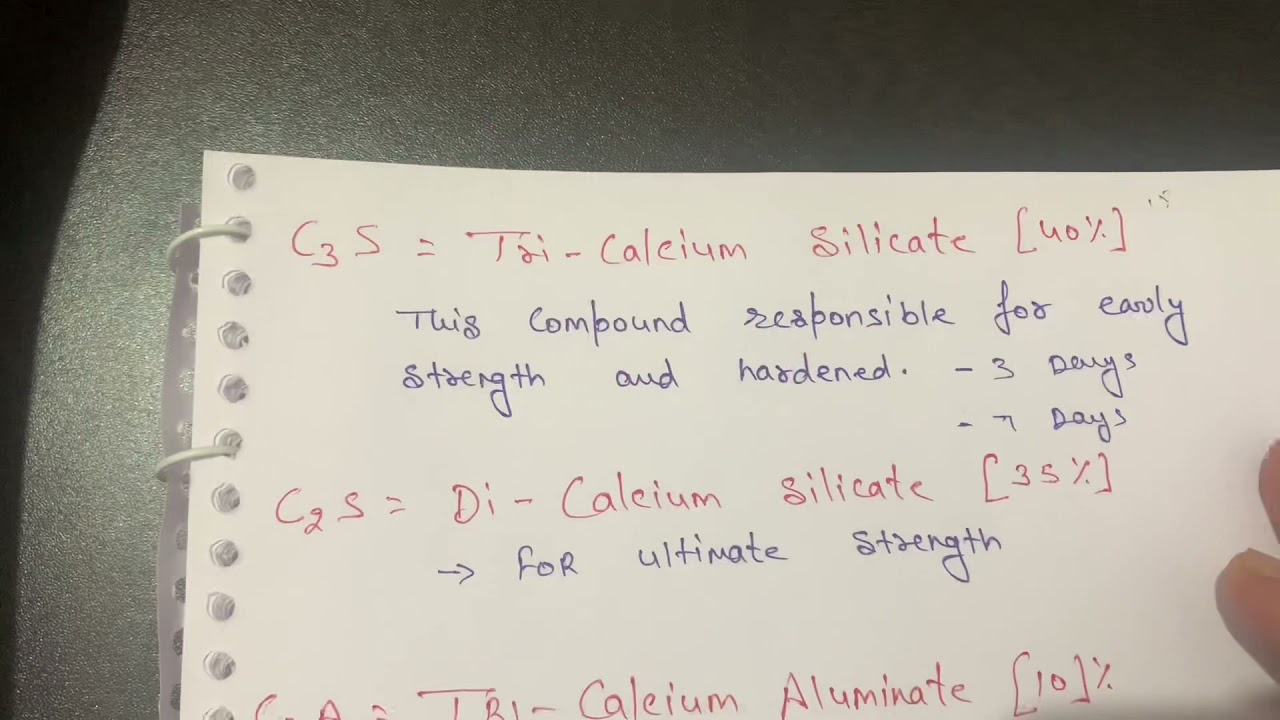 C3S = Tri-Calcium Silicate [40%]
This compound responsible for early
strength and hardened. - 3 Days
- 7 Days
C2S = Di-Calcium silicate [35%]
→ FOR ultimate strength
C3A = TRI-Calcium Aluminate [10]%